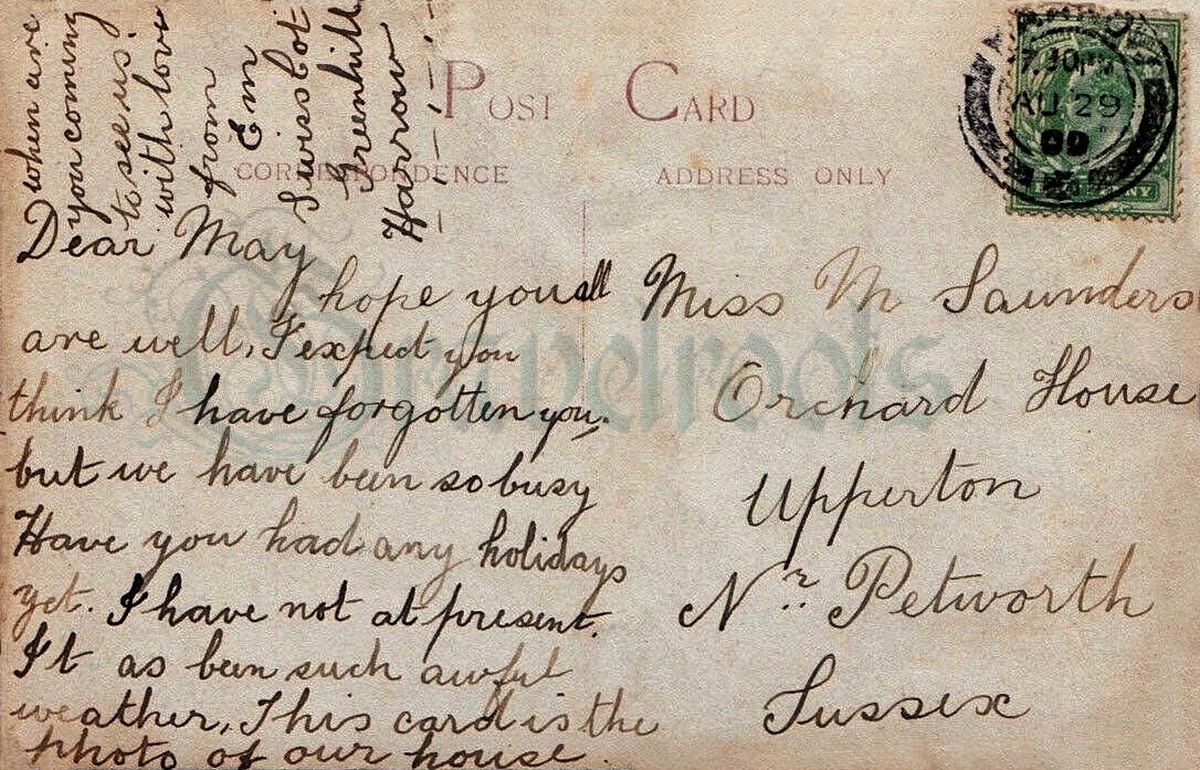 POST CARD
CORRESPONDENCE
ADDRESS ONLY
7.30PM
AU 29
09
Dear May
hope you all
are well, I expect you
think I have forgotten you.
but we have been so busy
Have you had any holidays
yet. I have not at present.
It as been such awful
weather, This card is the
photo of our house
when are
you coming
to see us?
with love
from
Em
Swiss Cot
Greenhill
Harrow
Miss M Saunders
Orchard House
Upperton
Nr. Petworth
Sussex
Gravelroots